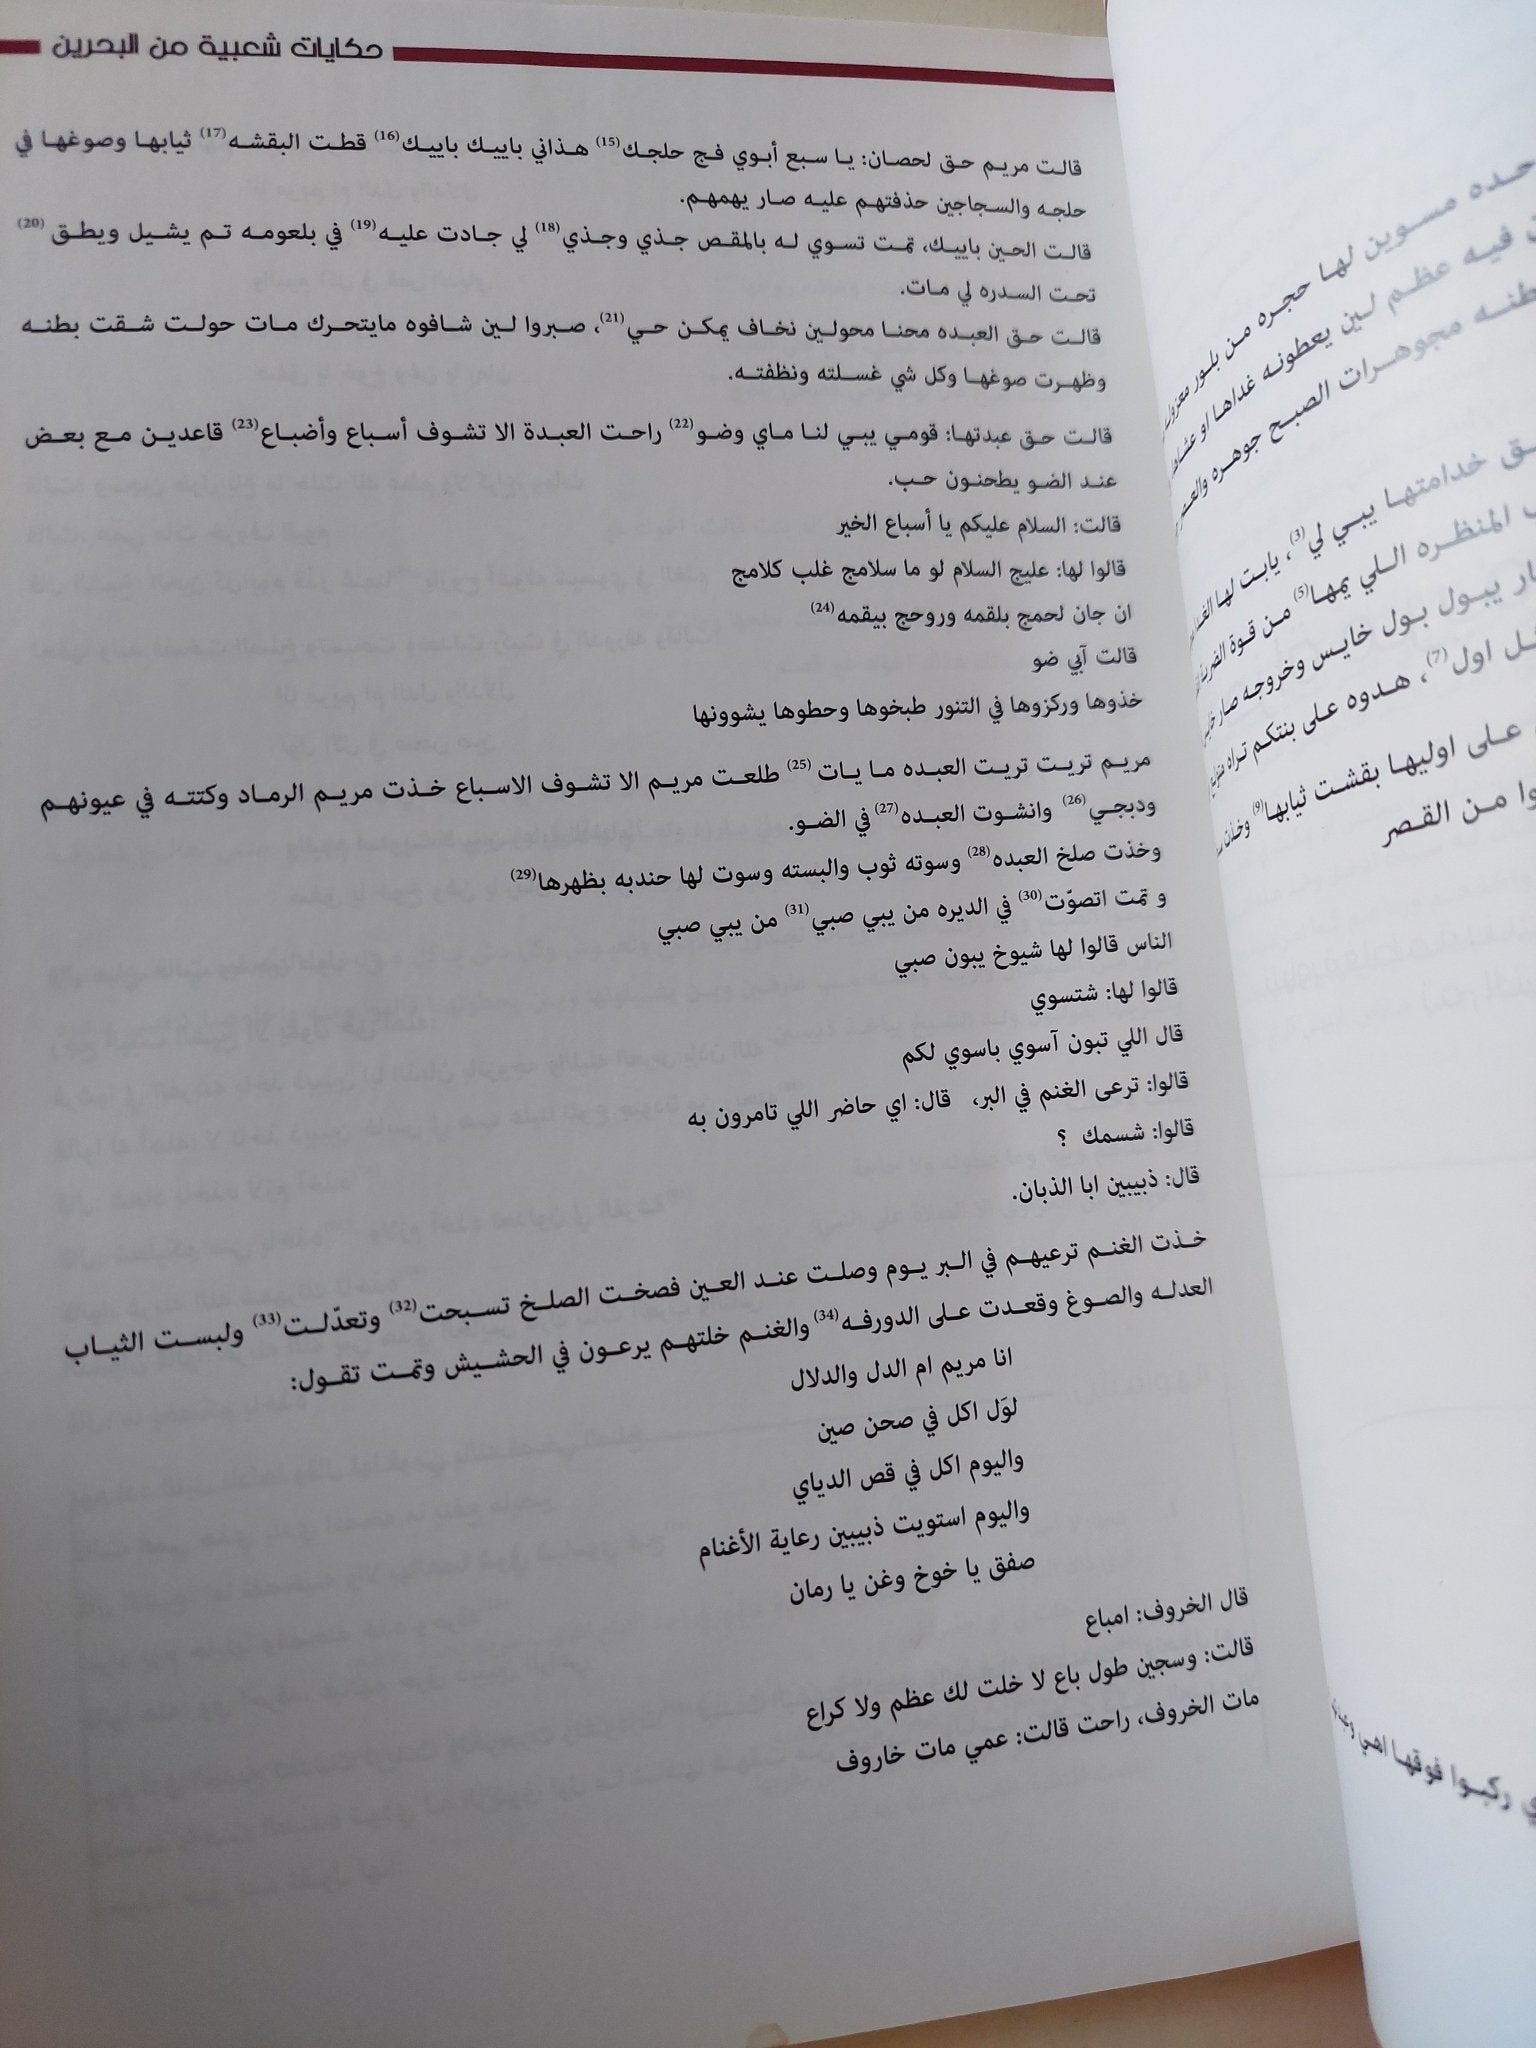 حكايات شعبية من البحرين
قالت مريم حق لحصان: يا سبع أبوي فج حلجك(15) هذاني باييك باييك(16) قطت البقشه(17) ثيابها وصوغها في
حلجه والسجاجين حذفتهم عليه صار يهمهم.
قالت الحين باييك، تمت تسوي له بالمقص جذي وجذي(18) لي جادت عليه(19) في بلعومه تم يشيل ويطق(20)
تحت السدره لي مات.
قالت حق العبده محنا محولين نخاف يمكن حي(21)، صبروا لين شافوه مايتحرك مات حولت شقت بطنه
وظهرت صوغها وكل شي غسلته ونظفته.
قالت حق عبدتها: قومي يبي لنا ماي وضو(22) راحت العبدة الا تشوف أسباع وأضباع(23) قاعدين مع بعض
عند الضو يطحنون حب.
قالت: السلام عليكم يا أسباع الخير
قالوا لها: عليج السلام لو ما سلامج غلب كلامج
ان جان لحمج بلقمه وروحج بيقمه(24)
قالت آبي ضو
خذوها وركزوها في التنور طبخوها وحطوها يشوونها
مريم تريت تريت العبده ما يات(25) طلعت مريم الا تشوف الاسباع خذت مريم الرماد وكتته في عيونهم
ودبجي(26) وانشوت العبده(27) في الضو.
وخذت صلخ العبده(28) وسوته ثوب والبسته وسوت لها حندبه بظهرها(29)
و تمت اتصوّت(30) في الديره من يبي صبي(31) من يبي صبي
الناس قالوا لها شيوخ يبون صبي
قالوا لها: شتسوي
قال اللي تبون آسوي باسوي لكم
قالوا: ترعى الغنم في البر، قال: اي حاضر اللي تامرون به
قالوا: شسمك ؟
قال: ذبيبين ابا الذبان.
خذت الغنم ترعيهم في البر يوم وصلت عند العين فصخت الصلخ تسبحت(32) وتعدّلت(33) ولبست الثياب
العدله والصوغ وقعدت على الدورفه(34) والغنم خلتهم يرعون في الحشيش وتمت تقول:
انا مريم ام الدل والدلال
لوَل اكل في صحن صين
واليوم اكل في قص الدياي
واليوم استويت ذبيبين رعاية الأغنام
صفق يا خوخ وغن يا رمان
قال الخروف: امباع
قالت: وسجين طول باع لا خلت لك عظم ولا كراع
مات الخروف، راحت قالت: عمي مات خاروف
حده مسوين لها حجره من بلور
فيه عظم لين يعطونه غداها او
طنه مجوهرات الصبح جوهره
ق خدامتها يبي لي(3)، يابت لها
المنظره اللي يمها(5) من قوة
ار يبول بول خايس وخروجه صار
ل اول(7)، هدوه على بنتكم تراه
على اوليها بقشت ثيابها(9) وخذت
وا من القصر
ركبوا فوقها اهي